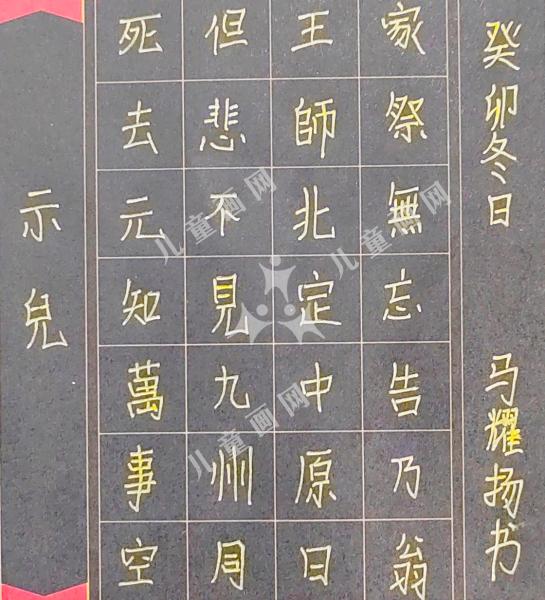 示兒
死去元知萬事空
但悲不見九州同
王師北定中原日
家祭無忘告乃翁
癸卯冬日 马耀扬书
儿童画网
儿童画网
儿童画网